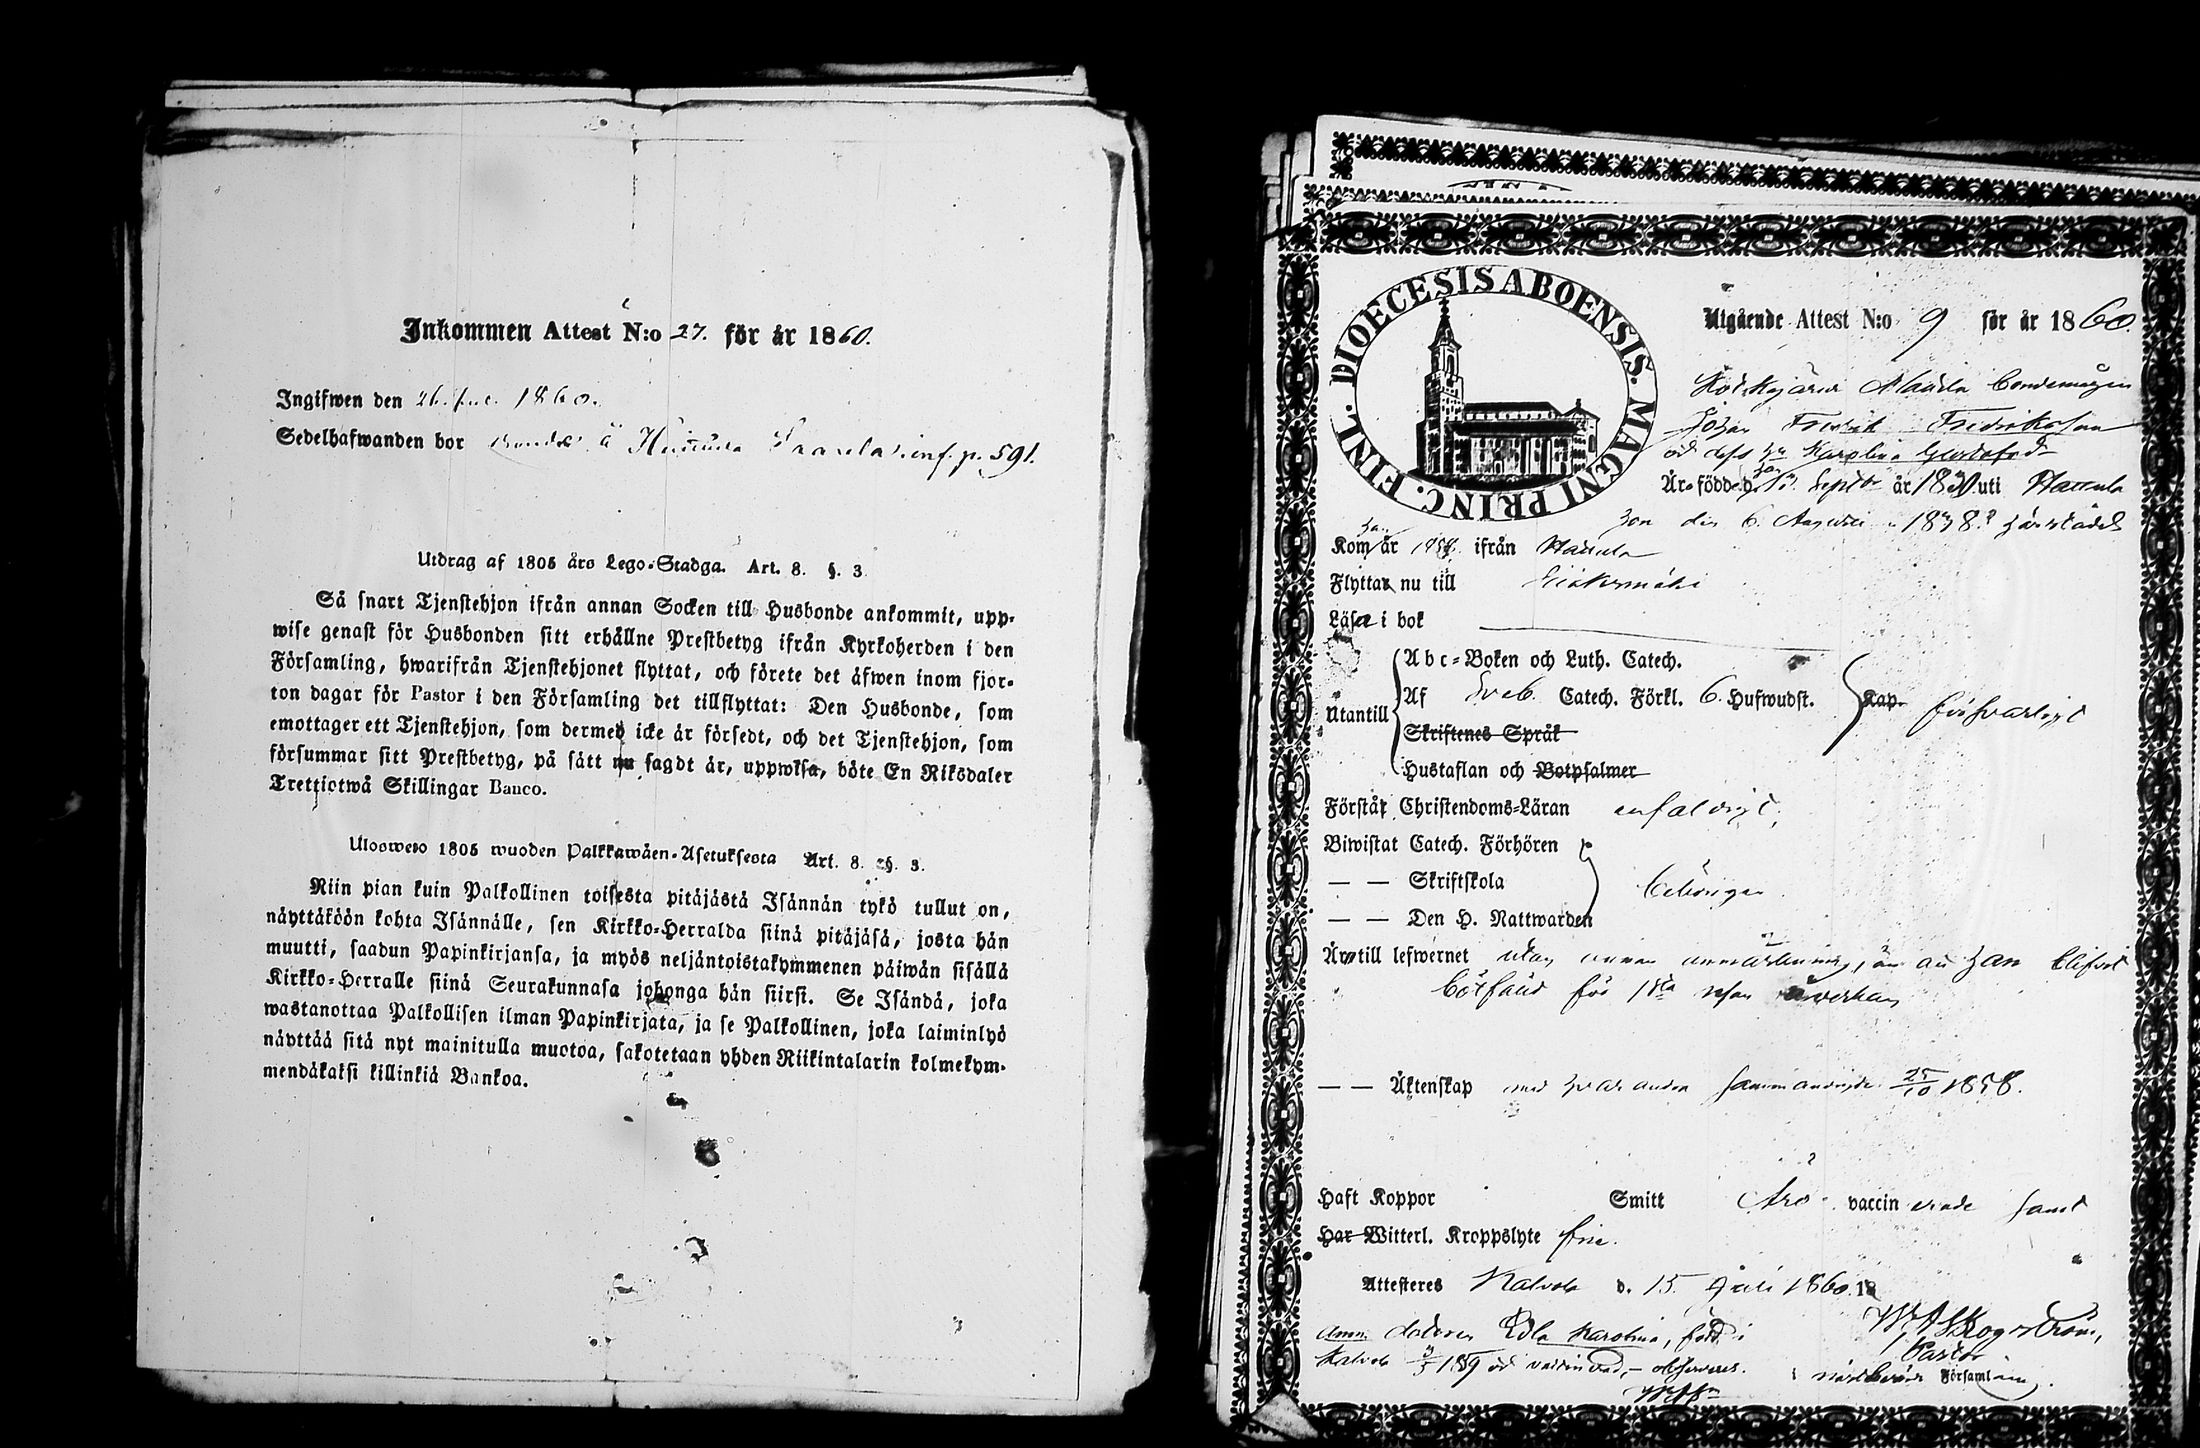 Inkommen Attest N:o 27. för år 1860.
Ingifwen den 26. Jul. 1860.
Sedelhafwanden bor å inf. p. 591.
Utdrag af 1805 års Lego-Stadga. Art. 8. §. 3.
Så snart Tjenstehjon ifrån annan Socken till Husbonde ankommit, upp-
wise genast för Husbonden sitt erhållne Prestbetyg ifrån Kyrkoherden i den
Församling, hwarifrån Tjenstehjonet flyttat, och förete det äfwen inom fjor-
ton dagar för Pastor i den Församling det tillflyttat: Den Husbonde, som
emottager ett Tjenstehjon, som dermed icke är försedt, och det Tjenstehjon, som
försummar sitt Prestbetyg, på sätt nu sagdt är, uppwisa, böte En Riksdaler
Trettiotwå Skillingar Banco.
Ulosweto 1805 wuoden Palkkawäen-Asetuksesta Art. 8. §. 3.
Niin pian kuin Palkollinen toisesta pitäjästä Isännän tykö tullut on,
näyttäköön kohta Isännälle, sen Kirkko-Herralda siinä pitäjäsä, josta hän
muutti, saadun Papinkirjansa, ja myös neljäntoistakymmenen päiwän sisällä
Kirkko-Herralle siinä Seurakunnasa johonga hän siirsi. Se Isändä, joka
wastanottaa Palkollisen ilman Papinkirjata, ja se Palkollinen, joka laiminlyö
näyttää sitä nyt mainitulla muotoa, sakotetaan yhden Riikintalarin kolmekym-
mendäkaksi killinkiä Bankoa.
DIOECESIS ABOENSIS. MAGNI PRINC. FINL.
Utgående Attest N:o 9 för år 1860.
Johan Fredrik Fredriksson
och dess Karolina Gustafsd:
Äro födde d. Septbr år 1830 uti Hattula
hon den 6. Augusti 1838 härstädes
Kom han år ifrån Hattula
Flyttar nu till
Läsa i bok
Utantill
Abc-Boken och Luth. Catech.
Af Sveb. Catech. Förkl. 6. Hufwudst. Kap. försvarligt
Skriftenes Språk
Hustaflan och Botpsalmer
Förstår Christendoms-Läran enfaldigt.
Biwistat Catech. Förhören
— — Skriftskola behörigen
— — Den H. Nattwarden
Äro till lefwernet utan annan anmärkning, än att han blifvit
bötfäld för 1sta resan
— — Äktenskap med hvarandra sammanvigde 25/10 1858.
Haft Koppor Smitt Äro vaccinerade samt
Har Witterl. Kroppslyte frie.
Attesteras Kalvola d. 15 Juli 1860. 18
Anm: dottren Edla Karolina, född i
Kalvola 1859 och vaccinerad, observeras.
Pastor
i Församling.